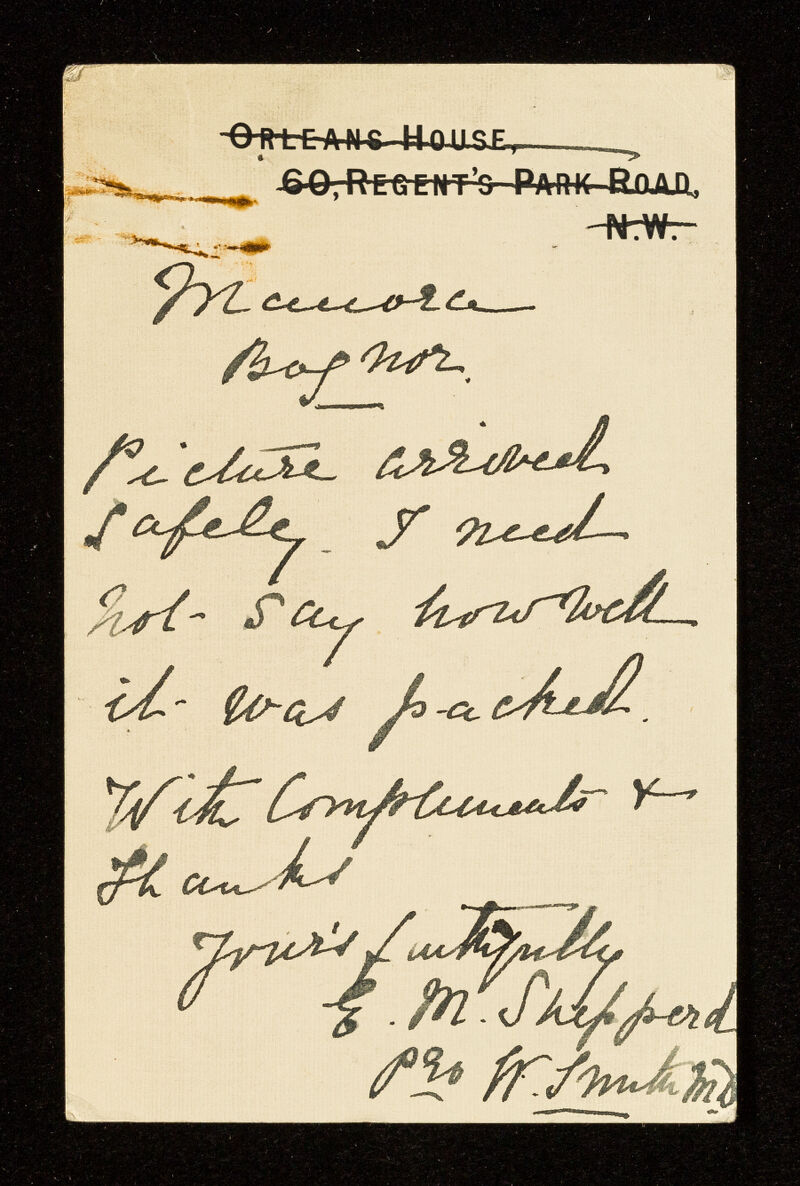 ORLEANS HOUSE,
60, REGENT'S PARK ROAD,
N.W.
Manora
Bognor.
Picture arrived
safely. I need
not say how well
it was packed.
With Compliments &
Thanks
Your's faithfully
E. M. Shepperd
pro W. Smith M.D